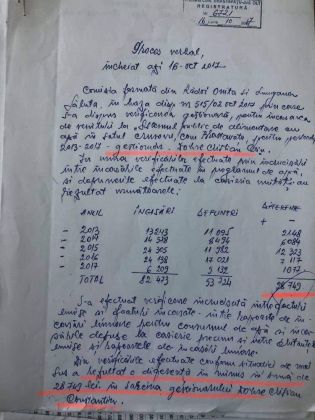 REGISTRATURĂ
Nr. 6721
16 luna 10 2017
Proces verbal,
încheiat azi 16 oct 2017
Comisia formată din Rădoi Onița și Lunganu
în baza disp. nr 515/02 oct 2017 prin care
s-a dispus verificarea gestionară, pentru încasarea
de venituri la "Sistemul public de alimentare cu
apă în satul pentru perioada
2013-2017 - gestionar,
În urma verificărilor efectuate prin
între încasările efectuate în programul de apă,
și depunerile efectuate la casieria unității au
rezultat următoarele;
ANUL ÎNCASĂRI DEPUNERI DIFERENȚE
+ -
- 2013 13243 11 095 2148
- 2014 14 578 8494 6084
- 2015 24 305 11 982 12 323
- 2016 24 138 17 021 7 117
- 2017 6 209 5 132 1077
82 473 53 724 28 749
S-a efectuat verificare încrucișată între facturi
emise și facturi încasate - între rapoarte de în-
casări lunare pentru consumul de apă și înca-
sările depuse la casierie precum și între chitanțele
emise și rapoartele de încasări lunare.
Din verificările efectuate conform situației de mai
sus a rezultat o diferență în minus în sumă de
28 749 lei în sarcina gestionarului
Constantin.